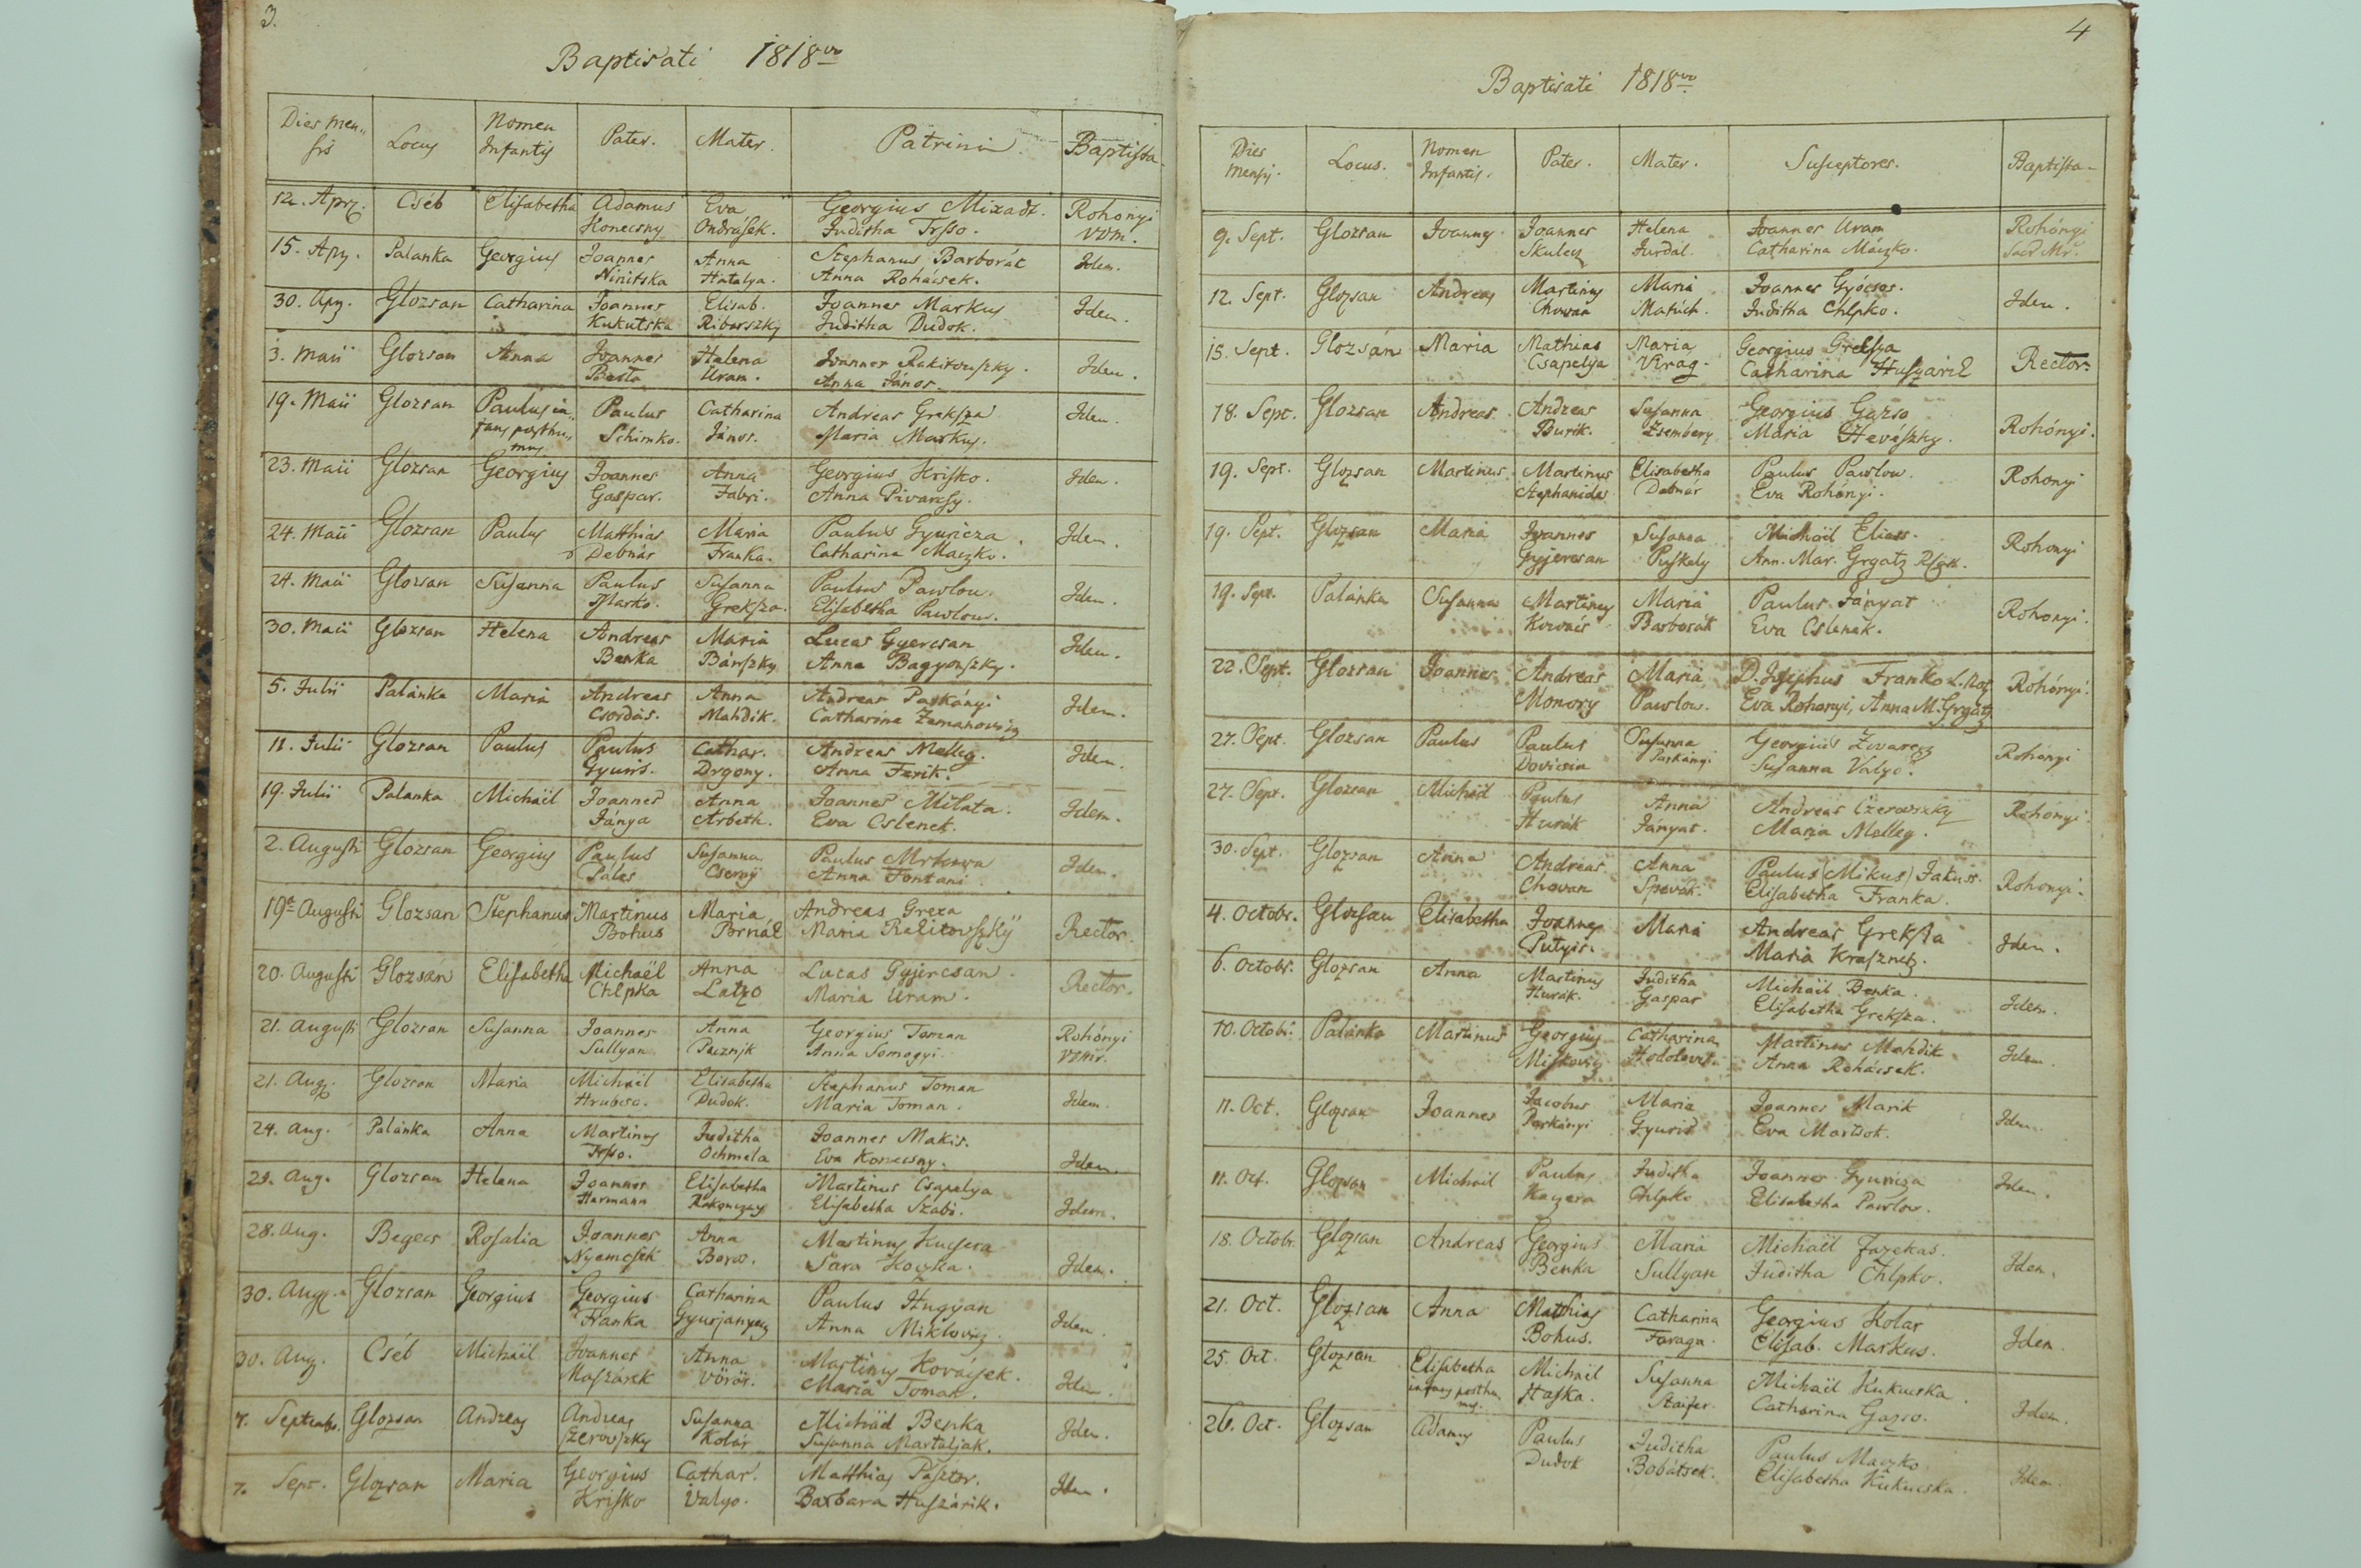 3.
Baptisati 1818vo
Dies men„ sis Locus Nomen Infantis Pater. Mater. Patrini Baptista
12. Apr. Cséb Elisabetha Adamus Konecsny Eva Ondrásek. Georgius Mixadt. Juditha Trsso. Rohonyi VDM.
15. Apr. Palanka Georgius Joannes Ninitska Anna Hatalya. Stephanus Barborák Anna Rohácsek. Idem.
30. Apr. Glozsan Catharina Joannes Kukutska Elisab. Riborszky Joannes Markus Juditha Dudok. Idem.
3. Maii Glozsan Anna Joannes Basta Helena Uram. Joannes Rakitowszky. Anna János. Idem.
19. Maii Glozsan Paulus in„ fans posthu„ mus Paulus Schimko. Catharina János. Andreas Greksza Maria Markus. Idem.
23. Maii Glozsan Georgius Joannes Gaspar. Anna Fabri. Georgius Krisko. Anna Pivarcsy. Idem.
24. Maii Glozsan Paulus Matthias Debnár Maria Franka. Paulus Gyuricza. Catharina Maczko. Idem.
24. Maii Glozsan Susanna Paulus Marko. Susanna Greksza. Paulus Pawlow. Elisabetha Pawlow. Idem.
30. Maii Glozsan Helena Andreas Benka Maria Bárszky Lucas Gyercsan Anna Bagyonszky. Idem.
5. Julii Palánka Maria Andreas Csordás. Anna Mahdik. Andreas Paskányi Catharina Zemanovicz Idem.
11. Julii Glozsan Paulus Paulus Gyuris. Cathar. Drgony. Andreas Melleg. Anna Ferik. Idem.
19. Julii Palanka Michaël Joannes Jánya Anna Arbeth. Joannes Milata. Eva Cslenek. Idem.
2. Augusti Glozsan Georgius Paulus Páles Susanna Cserny Paulus Mrkowa Anna Fontani. Idem.
19a Augusti Glozsan Stephanus Martinus Bohus Maria Brnák Andreas Grexa Maria Rakitowszky Rector.
20. Augusti Glozsán Elisabetha Michaël Chlpka Anna Latzo Lucas Gyjercsan. Maria Uram. Rector.
21. Augusti Glozsan Susanna Joannes Sullyan Anna Pecznjk Georgius Toman Anna Somogyi. Rohónyi VDMr.
21. Aug. Glozsan Maria Michaël Hrubcso. Elisabetha Dudok. Stephanus Toman Maria Toman. Idem.
24. Aug. Palánka Anna Martinus Trsso. Juditha Ochmela Joannes Makis. Eva Konecsny. Idem.
28. Aug. Glozsan Helena Joannes Hermann Elisabetha Rakonczay Martinus Csapelya Elisabetha Szabó. Idem.
28. Aug. Begecs Rosalia Joannes Nyemcsek Anna Boros. Martinus Kucsera Sara Koczka. Idem.
30. Aug. Glozsan Georgius Georgius Franka Catharina Gyurjanyecz Paulus Hugyan Anna Miklovicz. Idem.
30. Aug. Cséb Michaël Joannes Maszárek Anna Vörös. Martinus Kovácsek. Maria Toman. Idem.
7. Septembr. Glozsan Andreas Andreas Szerowszky Susanna Kolár Michaël Benka Susanna Martuljak. Idem.
7. Sept. Glozsan Maria Georgius Krisko Cathar. Valyo. Matthias Pásztor. Barbara Huszárik. Idem.
4
Baptisati 1818vo
Dies Mensis. Locus. Nomen Infantis. Pater. Mater. Susceptores. Baptista
9. Sept. Glozsan Joannes Joannes Skulecz Helena Jurdal. Joannes Uram Catharina Máczko. Rohónyi
12. Sept. Glozsan Andreas Martinus Chovan Maria Matúch. Joannes Gyócsos. Juditha Chlpko. Idem.
15. Sept. Glozsán Maria Mathias Csapelya Maria Virág. Georgius Greksza Catharina Huszárik Rector.
18. Sept. Glozsan Andreas. Andreas Burik. Susanna Zsembery Georgius Gazso Maria Hevészky. Rohónyi.
19. Sept. Glozsan Martinus. Martinus Stephanides Elisabetha Debnár Paulus Pawlow. Eva Rohónyi. Rohonyi
19. Sept. Glozsan Maria Joannes Gyjercsan Susanna Puskely Michaël Elias. Ann. Mar. Grgatz Rohonyi
19. Sept. Palánka Susanna Martinus Kovács Maria Barborák Paulus Jányas Eva Cslenek. Rohonyi.
22. Sept. Glozsan Joannes Andreas Monory Maria Pawlow. Franko Eva Rohonyi, Anna M. Grgatz Rohónyi.
27. Sept. Glozsan Paulus Paulus Dovicsin Susanna Parkányi Georgius Zvarecz Susanna Valyo. Rohónyi
27. Sept. Glozsan Michaël Paulus Hurák Anna Jányas. Andreas Czerowszky Maria Melleg. Rohónyi.
30. Sept. Glozsan Anna Andreas Chovan Anna Spevák. Paulus (Mikus) Jakuss. Elisabetha Franka. Rohonyi.
4. Octobr. Glozsan Elisabetha Joannes Putyis. Maria Andreas Greksza Maria Krasznetz. Idem.
6. Octobr. Glozsan Anna Martinus Hurák. Juditha Gaspar Michaël Benka. Elisabetha Greksza. Idem.
10. Octobr. Palánka Martinus Georgius Miskovicz Catharina Martinus Mahdik Anna Rohácsek. Idem.
11. Oct. Glozsan Joannes Jacobus Parkányi Maria Gyuris Joannes Marik Eva Martsok. Idem.
11. Oct. Glozsan Michaël Paulus Kaczera Juditha Chlpko Joannes Gyuricza Elisabetha Pawlow. Idem.
18. Octobr. Glozsan Andreas Georgius Benka Maria Sullyan Michaël Fazekas. Juditha Chlpko. Idem.
21. Oct. Glozsan Anna Matthias Bohus. Catharina Faraga. Georgius Kolár Elisab. Markus. Idem.
25. Oct. Glozsan Elisabetha infans posthu„ ma. Michaël Haska. Susanna Staifer. Michaël Kukucska. Catharina Gazso. Idem.
26. Oct. Glozsan Adamus Paulus Dudok Juditha Bobátsek. Paulus Maczko. Elisabetha Kukucska. Idem.